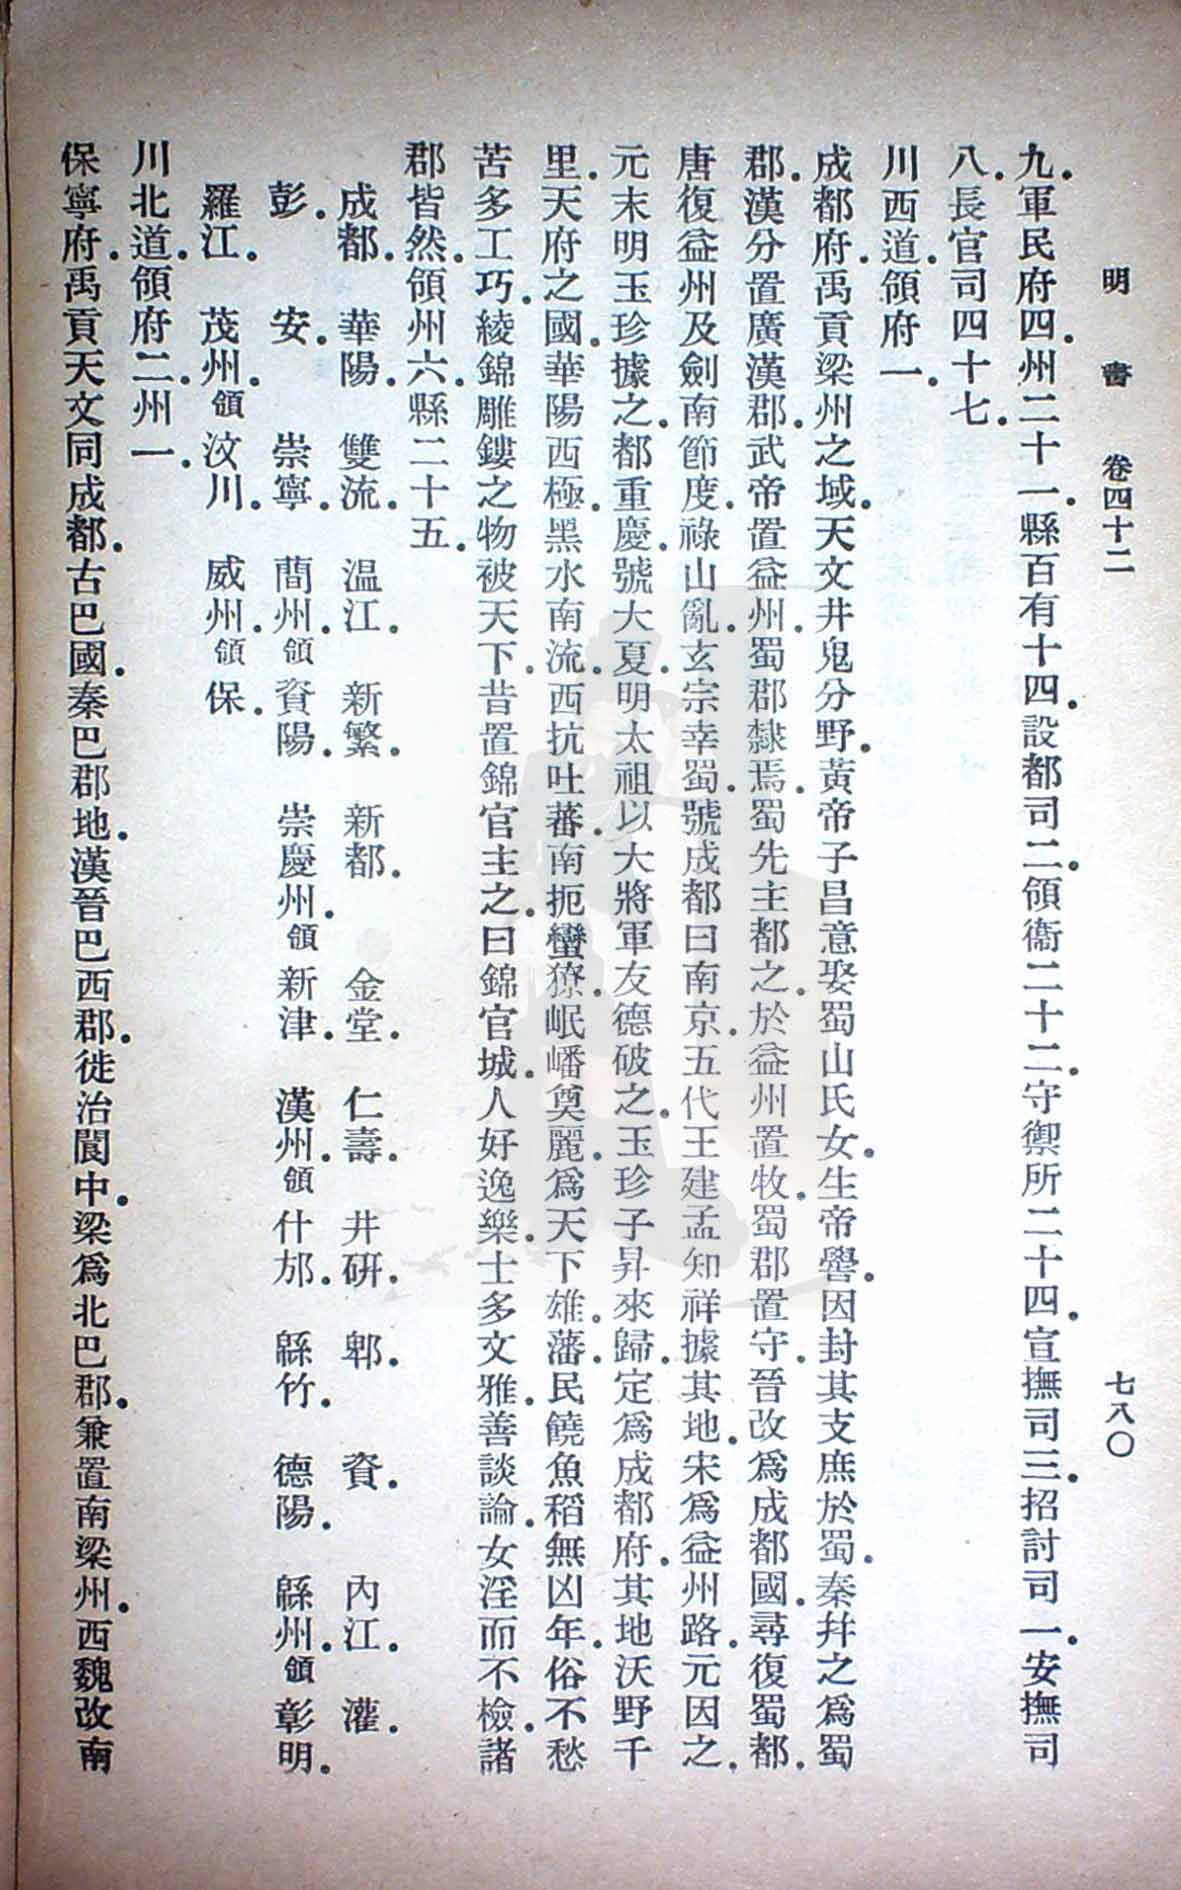 明書 卷四十二 七八〇
九。軍民府四。州二十一。縣百有十四。設都司二。領衞二十二。守禦所二十四。宣撫司三。招討司一。安撫司
八。長官司四十七。
川西道。領府一。
成都府。禹貢梁州之域。天文井鬼分野。黃帝子昌意娶蜀山氏女。生帝嚳。因封其支庶於蜀。秦幷之爲蜀
郡。漢分置廣漢郡。武帝置益州。蜀郡隸焉。蜀先主都之。於益州置牧。蜀郡置守。晉改爲成都國。尋復蜀都。
唐復益州及劍南節度。祿山亂。玄宗幸蜀。號成都曰南京。五代王建孟知祥據其地。宋爲益州路。元因之。
元末明玉珍據之。都重慶。號大夏。明太祖以大將軍友德破之。玉珍子昇來歸。定爲成都府。其地沃野千
里。天府之國。華陽西極。黑水南流。西抗吐蕃。南扼蠻獠。岷嶓奠麗。爲天下雄藩。民饒魚稻。無凶年。俗不愁
苦。多工巧。綾錦雕鏤之物被天下。昔置錦官主之。曰錦官城。人好逸樂。士多文雅。善談論。女淫而不檢。諸
郡皆然。領州六。縣二十五。
成都。 華陽。 雙流。 温江。 新繁。 新都。 金堂。 仁壽。 井研。 郫。 資。 內江。 灌。
彭。 安。 崇寧。 蕳州。領 資陽。 崇慶州。領 新津。 漢州。領 什邡。 緜竹。 德陽。 緜州。領 彰明。
羅江。 茂州。領 汶川。 威州。領 保。
川北道。領府二。州一。
保寧府。禹貢天文同成都。古巴國。秦巴郡地。漢晉巴西郡。徙治閬中。梁爲北巴郡。兼置南梁州。西魏改南